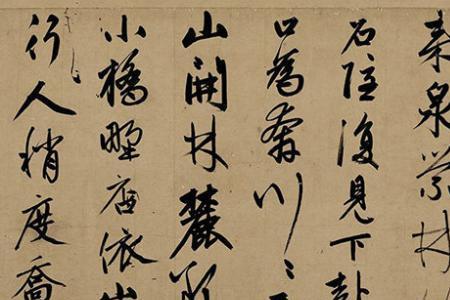 來泉縈林
石隱復見下赴
口為奔川〻
山開林麓
小橋野店依山
行人稍度喬